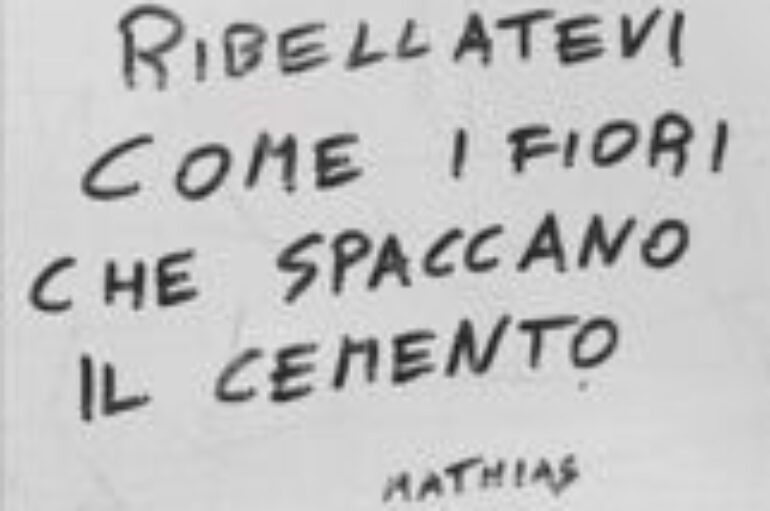 RIBELLATEVI
COME I FIORI
CHE SPACCANO
IL CEMENTO
MATHIAS